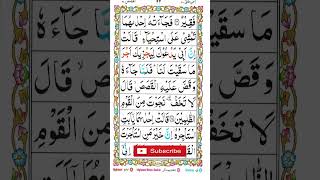 فَقِیْرٌ ۝ فَجَآءَتْهُ اِحْدٰىهُمَا
تَمْشِیْ عَلَی اسْتِحْیَآءٍ قَالَتْ
اِنَّ اَبِیْ یَدْعُوْكَ لِیَجْزِیَكَ اَجْرَ
مَا سَقَیْتَ لَنَا فَلَمَّا جَآءَهٗ
وَ قَصَّ عَلَیْهِ الْقَصَصَ قَالَ
لَا تَخَفْ نَجَوْتَ مِنَ الْقَوْمِ
الظّٰلِمِیْنَ ۝ قَالَتْ اِحْدٰىهُمَا یٰۤاَبَتِ
اسْتَاْجِرْهُ اِنَّ خَیْرَ مَنِ اسْتَاْجَرْتَ
Subscribe
اِنِّیْ